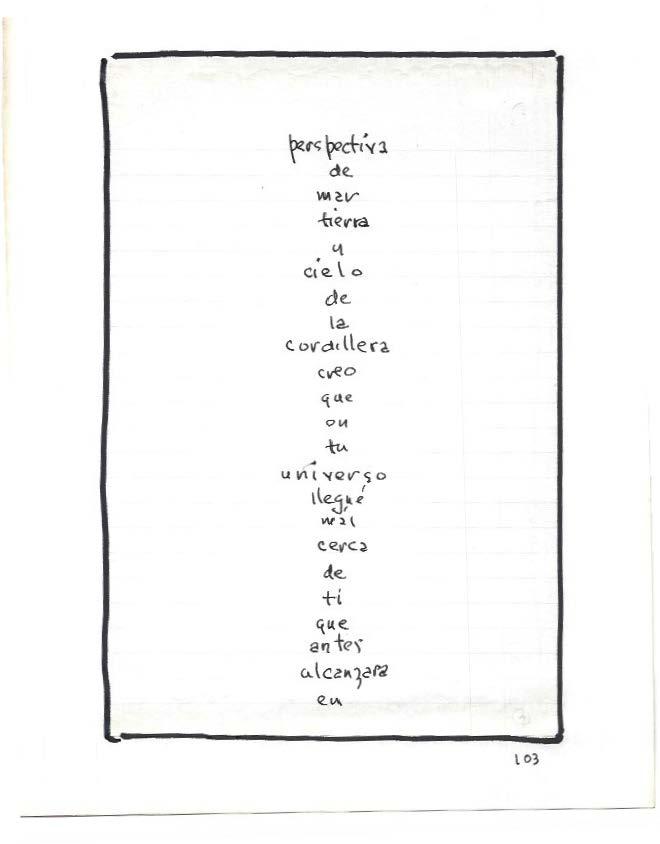 perspectiva
de
mar
tierra
y
cielo
de
la
cordillera
creo
que
en
tu
universo
llegué
más
cerca
de
ti
que
antes
alcanzara
en
103